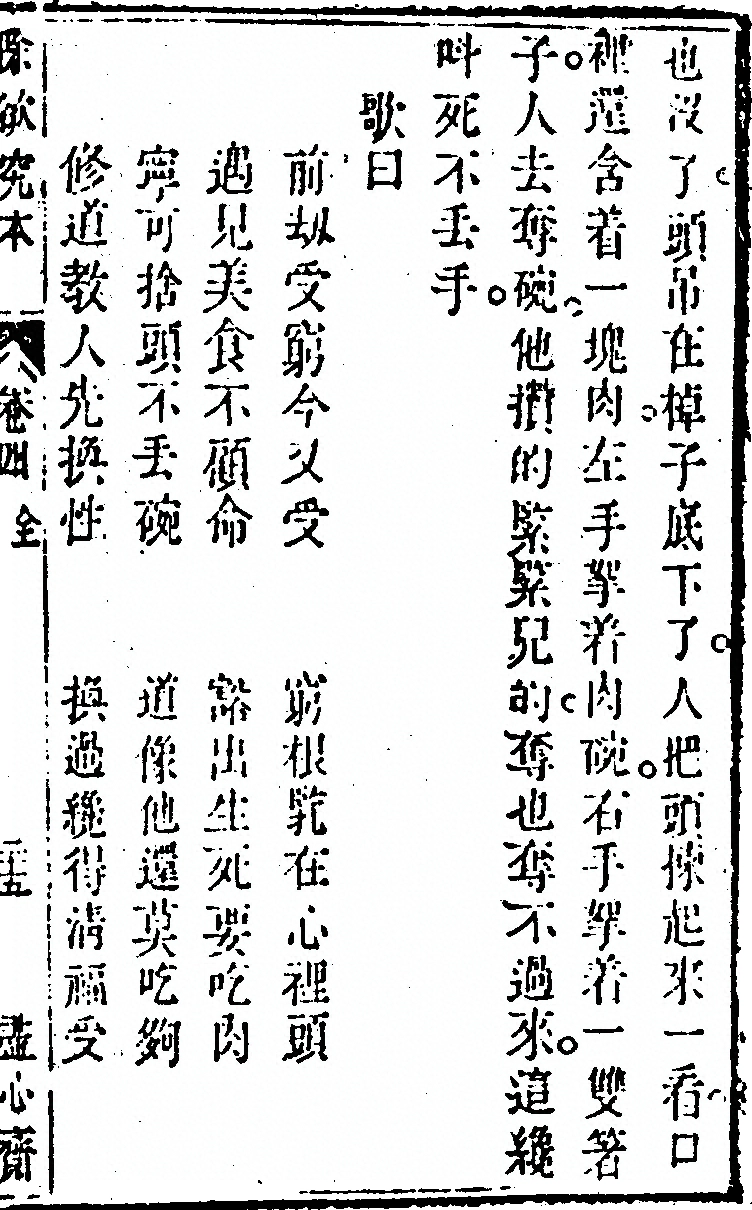 也沒了頭吊在棹子底下了人把頭揀起來一看口
裡還含着一塊肉左手拏着肉碗右手拏着一雙箸
子人去奪碗他攢的緊緊兒的奪也奪不過來這纔
叫死不丟手
歌曰
前劫受窮今又受 窮根㸔在心裡頭
遇見美食不顧命 豁出生死要吃肉
寧可捨頭不丟碗 道像他還莫吃夠
修道教人先換性 換過纔得清福受
除欲究本 卷四 全 二十五 盡心齋